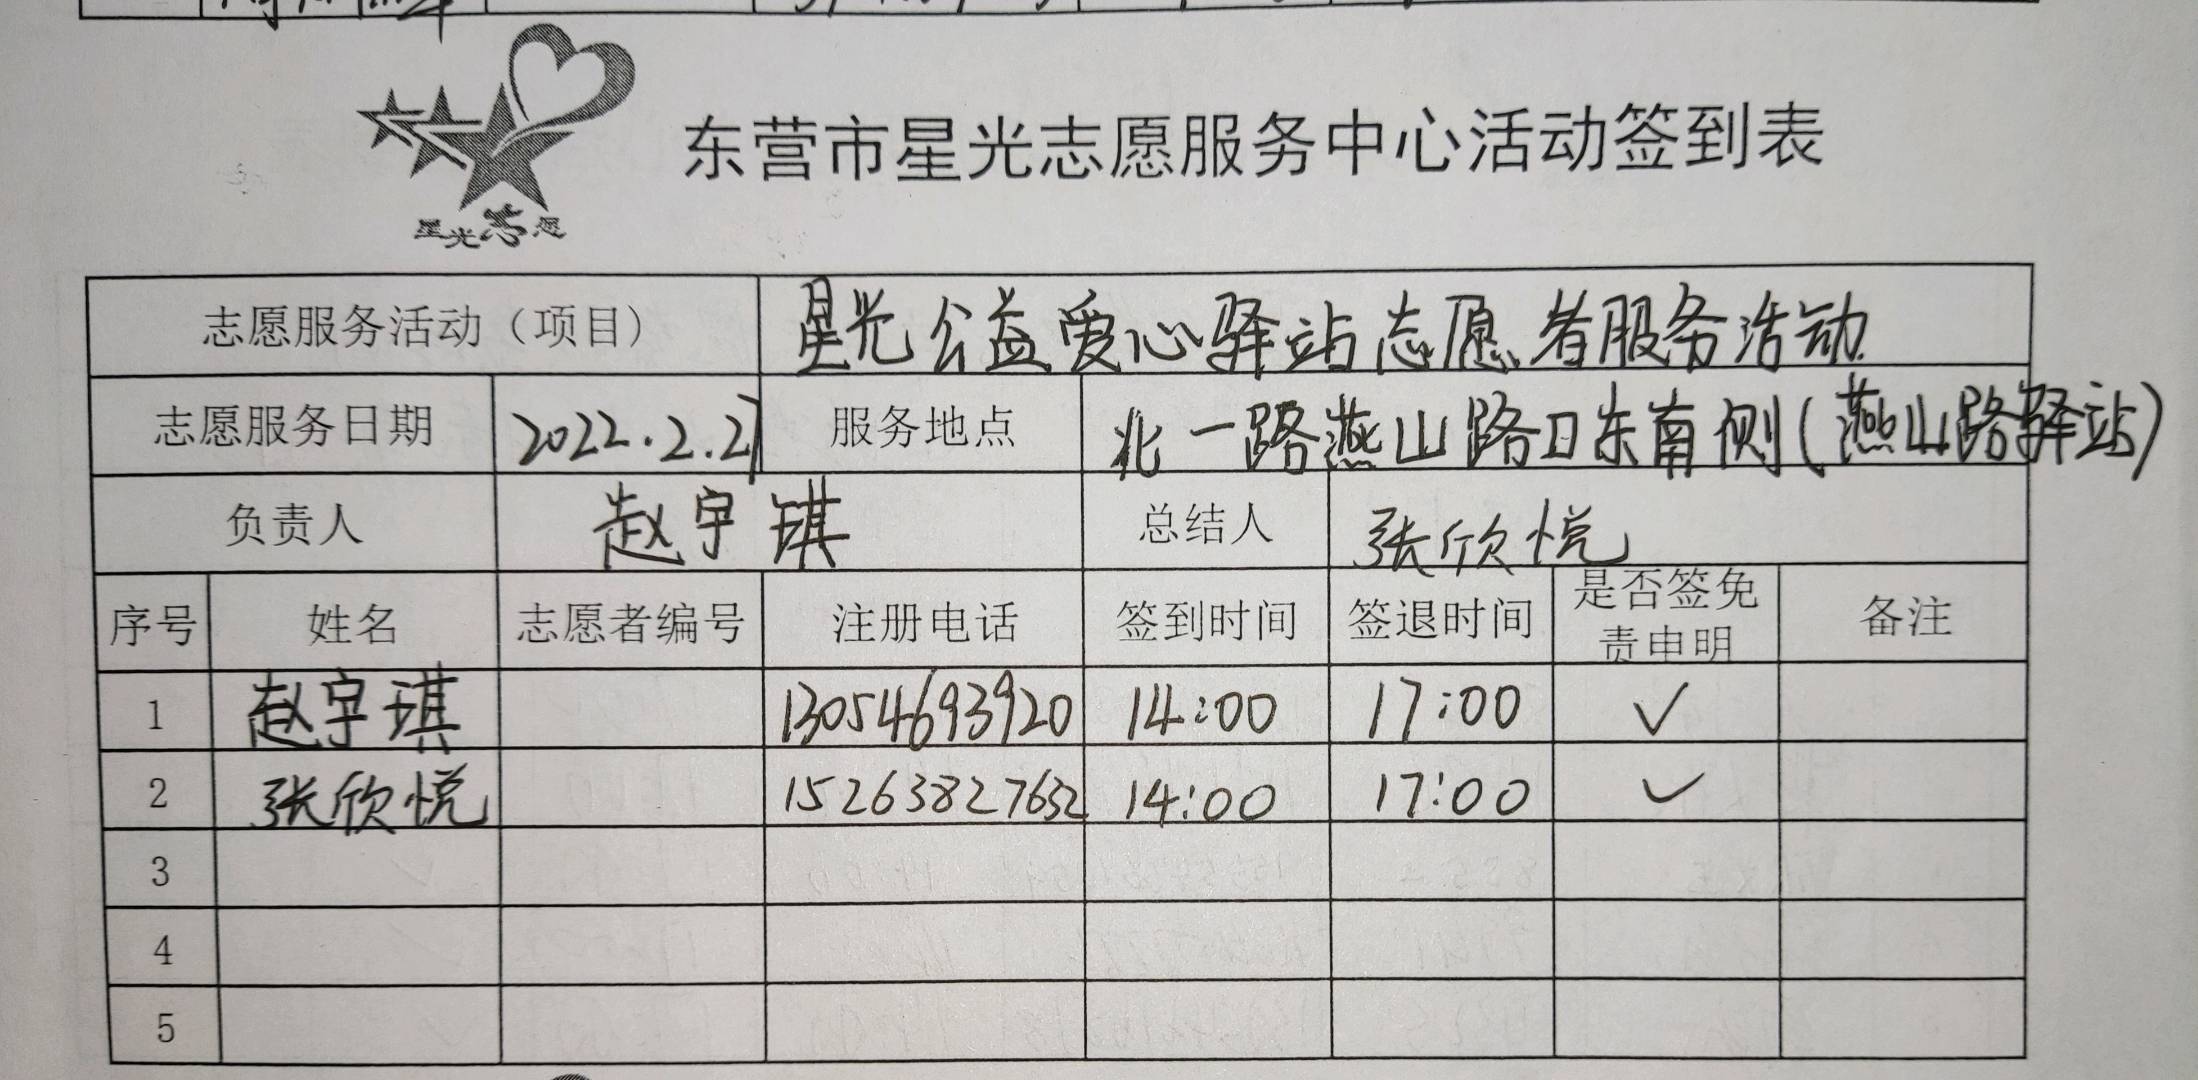 东营市星光志愿服务中心活动签到表
星光志愿
志愿服务活动（项目） 星光公益爱心驿站志愿者服务活动
志愿服务日期 2022.2.27 服务地点 北一路燕山路口东南侧(燕山路驿站)
负责人 赵宇琪 总结人 张欣悦
序号 姓名 志愿者编号 注册电话 签到时间 签退时间 是否签免责申明 备注
1 赵宇琪 13054693920 14:00 17:00 ✓
2 张欣悦 15263827652 14:00 17:00 ✓
3
4
5